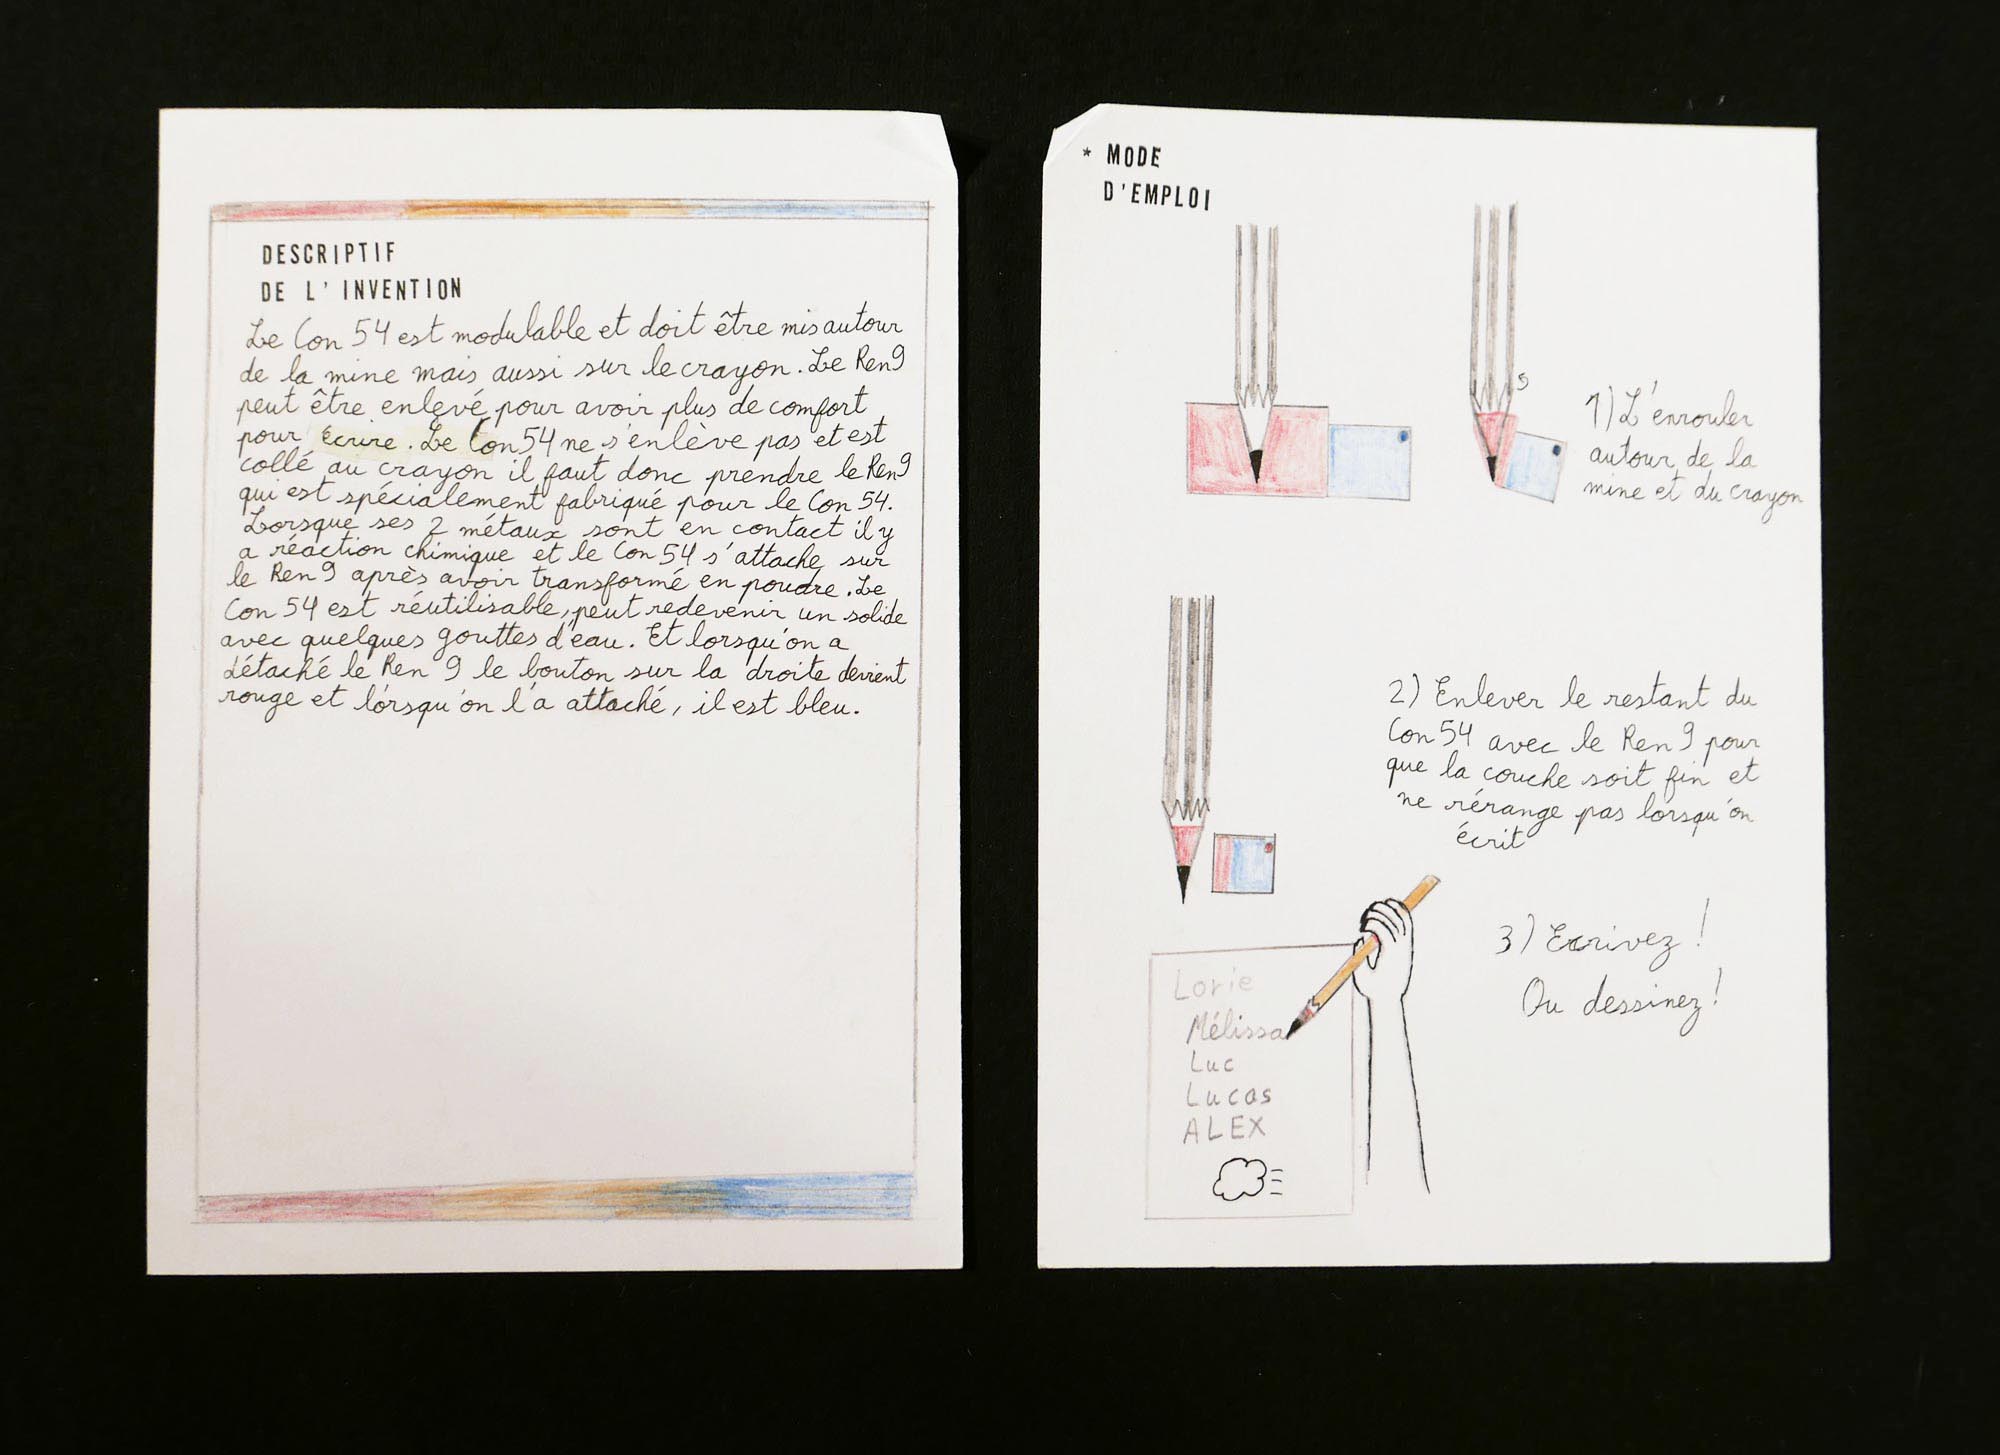 DESCRIPTIF
DE L'INVENTION
Le Con 54 est modulable et doit être mis autour
de la mine mais aussi sur le crayon. Le Ren9
peut être enlevé pour avoir plus de comfort
pour écrire. Le Con54 ne s'enlève pas et est
collé au crayon il faut donc prendre le Ren9
qui est spécialement fabriqué pour le Con 54.
Lorsque ses 2 métaux sont en contact il y
a réaction chimique et le Con 54 s'attache sur
le Ren9 après avoir transformé en poudre. Le
Con 54 est réutilisable, peut redevenir un solide
avec quelques gouttes d'eau. Et lorsqu'on a
détaché le Ren 9 le bouton sur la droite devient
rouge et lorsqu'on l'a attaché, il est bleu.
* MODE
D'EMPLOI
1) L'enrouler
autour de la
mine et du crayon
2) Enlever le restant du
Con 54 avec le Ren 9 pour
que la couche soit fin et
ne rérange pas lorsqu'on
écrit
3) Ecrivez !
Ou dessinez !
Lorie
Mélissa
Luc
Lucas
ALEX